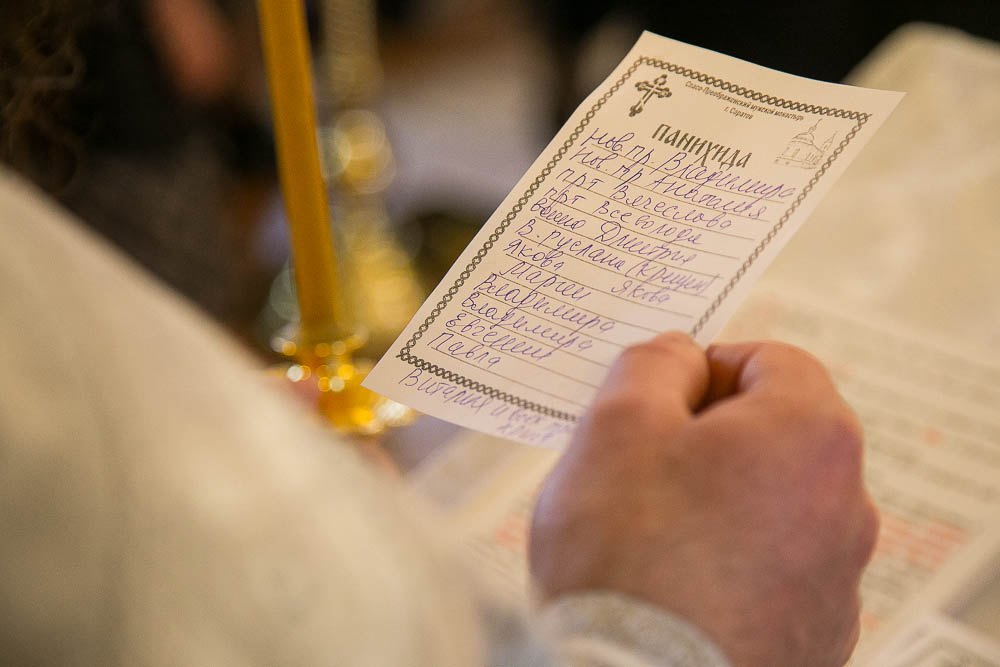 Спасо-Преображенский мужской монастырь
г. Саратов
ПАНИХИДА
Нов. пр. Владимира
Нов пр Анатолия
прт Вячеслова
прт Всеволода
воина Дмитрия
В. Руслана
Якова Якова
Марии
Владимира
Владимира
Евгению
Павла
Виталия и всех